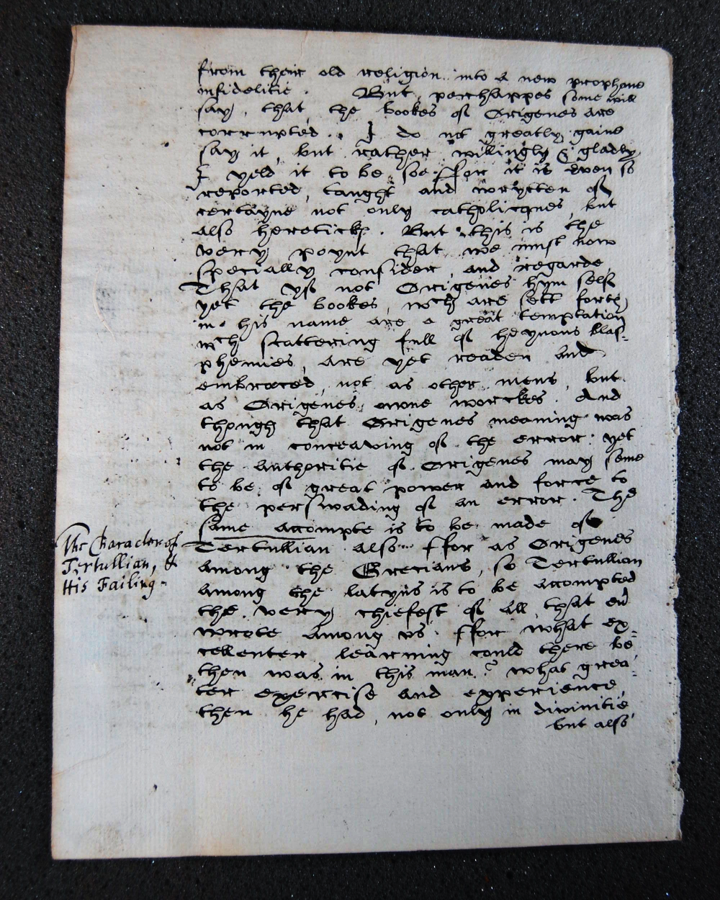 from their old religion into a new prophane
infidelitie. But, perchappes some will
say, that the bookes of Origenes are
corrupted. I do not greatly gaine
say it, but rather willingly & gladly
I yeld it to be soe ffor it is even so
reported, taught and wrytten of
certayne not only catholicques, but
also heretickes. But this is the
very poynt that we must now
specially consider, and regarde
That yf not Origenes hym self
yet the bookes, wch are sett forth
in his name are a great temptation
wch scattering full of heynous blas-
phemies, are yet readen and
embraced, not as other mens, but
as Origenes owne worckes. And
though that Origenes meaning was
not in conceaving of the error yet
the authoritie of Origenes may seme
to be of great power and force to
the perswading of an error. The
same accompte is to be made of
Tertullian also ffor as Origenes
among the Grecians, so Tertullian
among the latyns is to be accompted
the very chiefest of all that
wrote among us. ffor what ex-
cellenter learning could there be
then was in this man? what grea-
ter exercise and experience,
then he had, not only in divinitie
but also
The Character of
Tertullian, &
His Failing.